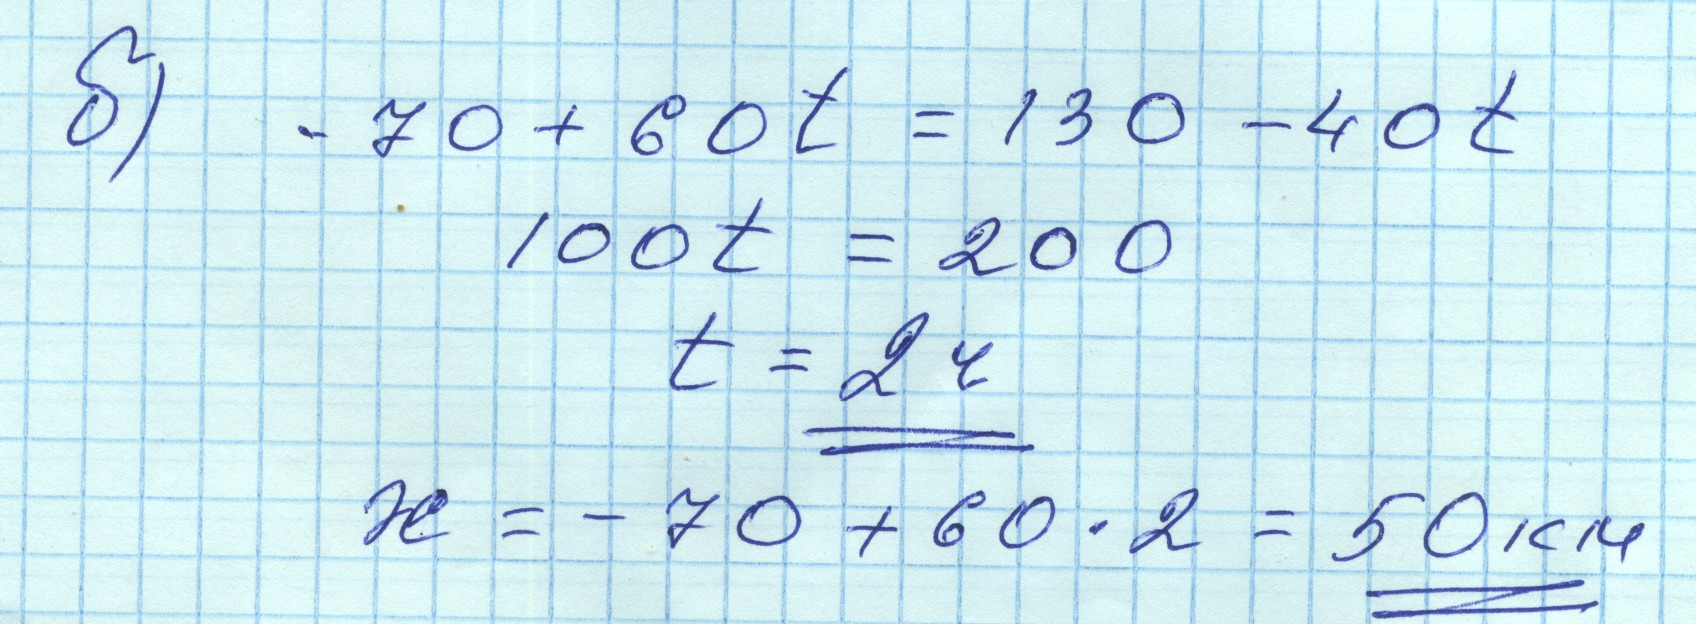 б) -70 + 60t = 130 - 40t
100t = 200
t = 2ч
x = -70 + 60·2 = 50км